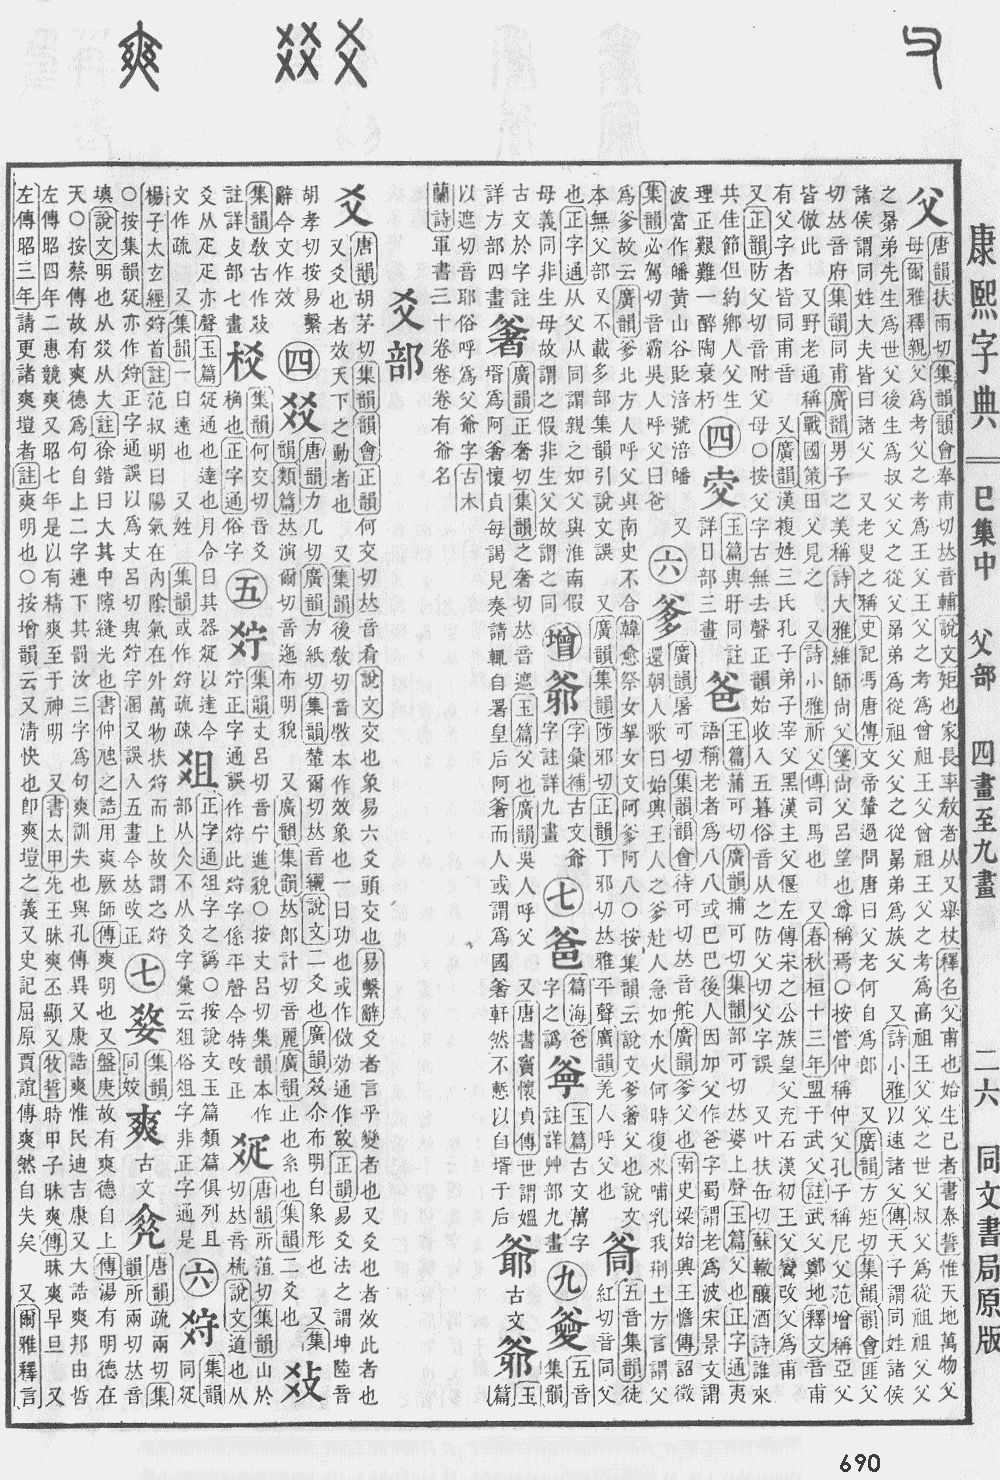 康熙字典 巳集中 父部 四畫至九畫 二六 同文書局原版
父 唐韻扶雨切集韻韻會奉甫切𠀤音輔說文矩也家長率敎者从又舉杖釋名父甫也始生已者書泰誓惟天地萬物父
母爾雅釋親父爲考父之考爲王父王父之考爲曾祖王父曾祖王父之考爲高祖王父父之世父叔父爲從祖祖父父
之晜弟先生爲世父後生爲叔父父之從父晜弟爲從祖父父之從晜弟爲族父 又詩小雅以速諸父傳天子謂同姓諸侯
諸侯謂同姓大夫皆曰諸父 又老叟之稱史記馮唐傳文帝輦過問唐曰父老何自爲郎 又廣韻方矩切集韻韻會匪父
切𠀤音府集韻同甫廣韻男子之美稱詩大雅維師尚父箋尚父呂望也尊稱焉○按管仲稱仲父孔子稱尼父范增稱亞父
皆倣此 又野老通稱戰國策田父見之 又詩小雅祈父傳司馬也 又春秋桓十三年盟于武父註武父鄭地釋文音甫
有父字者皆同甫音 又廣韻漢複姓三氏孔子弟子宰父黑漢主父偃左傳宋之公族皇父充石漢初王父鸞改父爲甫
又正韻防父切音附父母○按父字古無去聲正韻始收入五暮俗音从之防父切父字誤 又叶扶缶切蘇轍釀酒詩誰來
共佳節但約鄉人父生
理正艱難一醉陶衰朽
四 玉篇與旰同註
詳日部三畫
爸 玉篇蒲可切廣韻捕可切集韻部可切𠀤婆上聲玉篇父也正字通夷
語稱老者爲八八或巴巴後人因加父作爸字蜀謂老爲波宋景文謂
波當作皤黃山谷貶涪號涪皤 又
集韻必駕切音霸吳人呼父曰爸
六 爹 廣韻屠可切集韻韻會待可切𠀤音舵廣韻爹父也南史梁始興王憺傳詔徵
還朝人歌曰始興王人之爹赴人急如水火何時復來哺乳我荆土方言謂父
爲爹故云廣韻爹北方人呼父與南史不合韓愈祭女挐女文阿爹阿八○按集韻云說文爹奢父也說文
本無父部又不載多部集韻引說文誤 又廣韻集韻陟邪切正韻丁邪切𠀤雅平聲廣韻羌人呼父也
五音集韻徒
紅切音同父
也正字通从父从同謂親之如父與淮南假
母義同非生母故謂之假非生父故謂之同
增 爺 字彙補古文爺
字註詳九畫
七 篇海爸
字之譌
玉篇古文萬字
註詳艸部九畫
九 五音
集韻
古文於字註
詳方部四畫
奢 廣韻正奢切集韻之奢切𠀤音遮玉篇父也廣韻吳人呼父 又唐書竇懷貞傳世謂媼
壻爲阿奢懷貞每謁見奏請輒自署皇后阿奢而人或謂爲國奢軒然不慙以自壻于后
爺 古文 爺 玉篇
以遮切音耶俗呼爲父爺字古木
蘭詩軍書三十卷卷卷有爺名
爻部
爻 唐韻胡茅切集韻韻會正韻何交切𠀤音肴說文交也象易六爻頭交也易繫辭爻者言乎變者也又爻也者效此者也
又爻也者效天下之動者也 又集韻後敎切音斅本作效象也一曰功也或作倣効通作詨正韻易爻法之謂坤陸音
胡孝切按易繫
辭今文作效
四 㸚 唐韻力几切廣韻力紙切集韻輦爾切𠀤音邐說文二爻也廣韻㸚尒布明白象形也 又集
韻類篇𠀤演爾切音迤布明貌 又廣韻集韻𠀤郎計切音麗廣韻止也系也集韻二爻也
集韻敎古作
註詳攴部七畫
集韻何交切音爻
桷也正字通俗字
五 集韻丈呂切音宁進貌○按丈呂切集韻本作
正字通誤作 此 字係平聲今特改正
唐韻所菹切集韻山於
切𠀤音梳說文通也从
爻从疋疋亦聲玉篇 通也達也月令曰其器 以達今
文作疏 又集韻一曰遠也 又姓 集韻或作 疏疎
爼 正字通俎字之譌○按說文玉篇類篇俱列且
部从仌不从爻字彙云爼俗俎字非正字通是
六 集韻
同
楊子太玄經 首註范叔明曰陽氣在內陰氣在外萬物扶 而上故謂之
○按集韻 亦作 正字通誤以爲丈呂切與 字溷又誤入五畫今𠀤改正
七 集韻
同
爽 古文 唐韻疏兩切集
韻所兩切𠀤音
塽說文明也从㸚从大註徐鍇曰大其中隙縫光也書仲虺之誥用爽厥師傳爽明也又盤庚故有爽德自上傳湯有明德在
天○按蔡傳故有爽德爲句自上二字連下其罰汝三字爲句爽訓失也與孔傳異又康誥爽惟民迪吉康又大誥爽邦由哲
左傳昭四年二惠競爽又昭七年是以有精爽至于神明 又書太甲先王昧爽丕顯又牧誓時甲子昧爽傳昧爽早旦 又
左傳昭三年請更諸爽塏者註爽明也○按增韻云又清快也卽爽塏之義又史記屈原賈誼傳爽然自失矣 又爾雅釋言
690